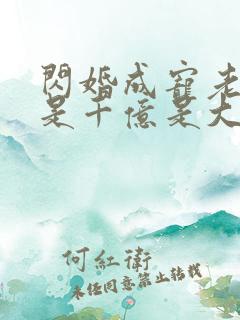 閃婚成寵老
是千億是大
何紅衛
未经同意禁止转载